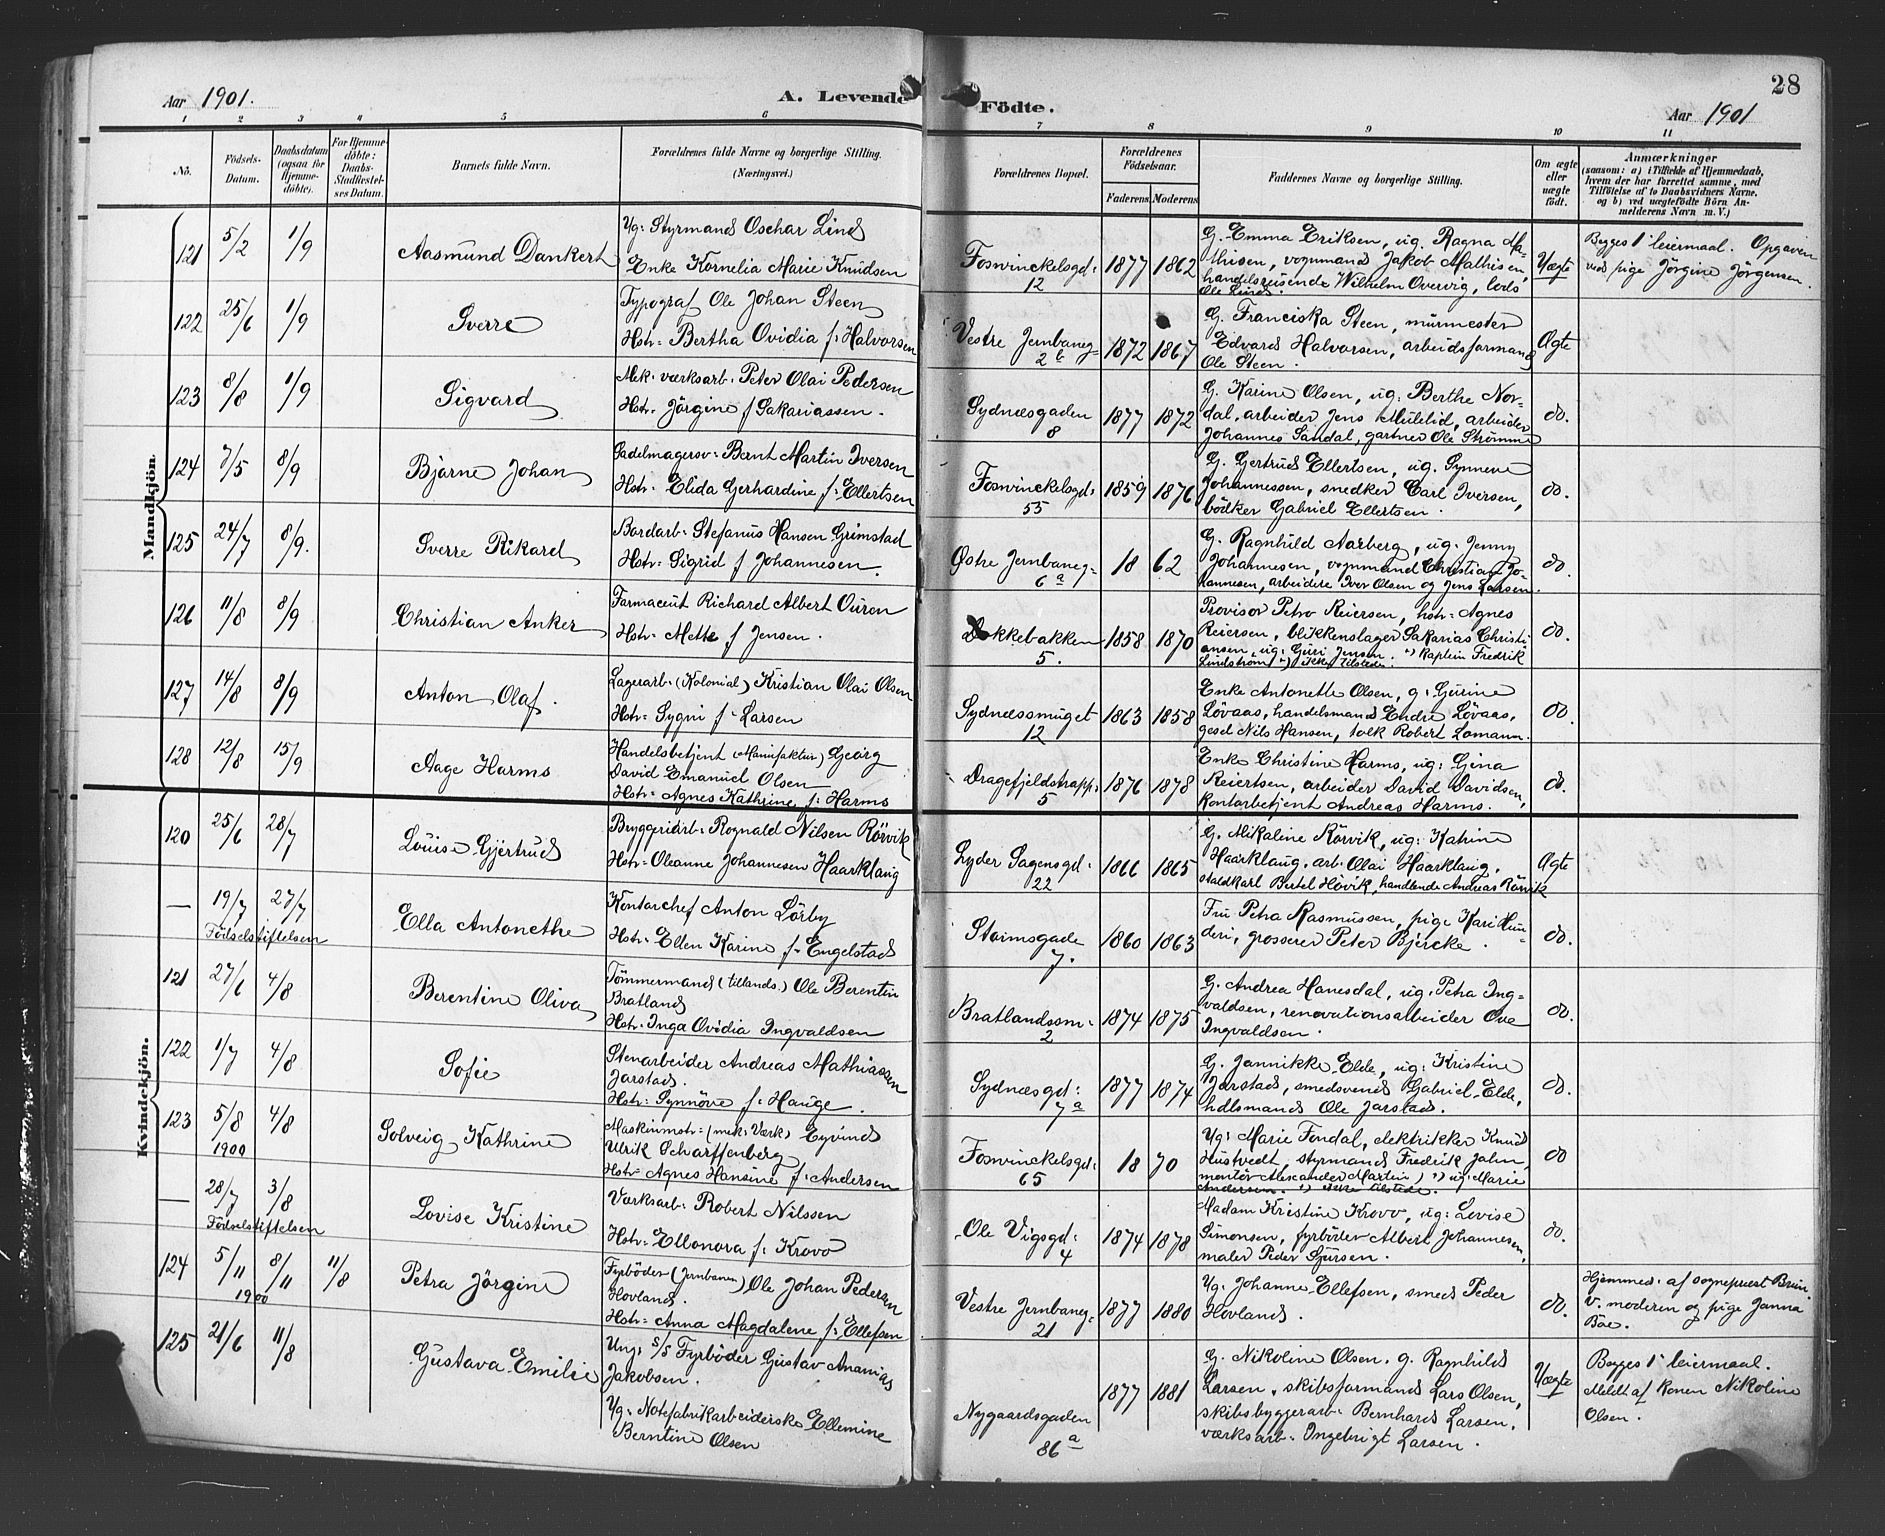 28
Aar 1901.
A. Levende Födte.
Aar 1901
1 2 3 4 5 6 7 8 9 10 11
No.
Födsels-Datum.
Daabsdatum (ogsaa for Hjemme-döbte).
For Hjemme-döbte: Daabs-Stadfæstel-ses Datum.
Barnets fulde Navn.
Forældrenes fulde Navne og borgerlige Stilling.
(Næringsvei.)
Forældrenes Bopæl.
Forældrenes Födselsaar.
Faderens Moderens
Faddernes Navne og borgerlige Stilling.
Om ægte eller uægte födt.
Anmærkninger
(saasom: a) i Tilfælde af Hjemmedaab,
hvem der har forrettet samme, med
Tilföielse af to Daabsvidners Navne.
og b) ved uægtefödte Börn An-
melderens Navn m. V.)
Mandkjön.
121 5/2 1/9 Aasmund Dankert
Ug: Styrmand Oschar Lind
Enke Kornelia Marie Knudsen
Foswinckelsgd: 12
1877 1862
G. Emma Eriksen, ug. Ragna Ma-
thisen, vognmand Jakob Mathisen,
handelsreisende Wilhelm Overvig, lods
Ole Lind.
Uægte
Begges 1' leiermaal. Opgaven
ved pige Jörgine Jörgensen.
122 25/6 1/9 Sverre
Typograf Ole Johan Steen
Hstr: Bertha Ovidia f: Halvorsen
Vestre Jernbaneg: 2b
1872 1867
G. Franciska Steen, murmester
Edvard Halvorsen, arbeidsformand
Ole Steen.
Ægte
123 8/8 1/9 Sigvard
Mek. værksarb. Peter Olai Pedersen
Hstr. Jörgine f Sakariassen.
Sydnæsgaden 8
1877 1872
G. Karine Olsen, ug. Berthe Nor-
dal, arbeider Jens Mulelid, arbeider
Johannes Sandal, gartner Ole Strömme
do.
124 7/5 8/9 Bjarne Johan
Sadelmagersv: Bernt Martin Iversen
Hstr. Elida Gerhardine f: Ellertsen
Foswinckelsgd: 55
1859 1876
G. Gertrud Ellertsen, ug. Synneve
Johannessen, snedker Carl Iversen,
bödker Gabriel Ellertsen.
do.
125 24/7 8/9. Sverre Rikard
Bordarb: Stefanus Hansen Grimstad
Hstr: Sigrid f Johannesen.
Østre Jernbaneg: 6a
18 62
G. Ragnhild Aarberg, ug. Jenny
Johannesen, vognmand Christian Jo-
hannesen, arbeidere Iver Olsen og Jens Larsen.
do.
126 11/8 8/9 Christian Anker
Farmaceut Richard Albert Ouren
Hstr: Mette f Jensen.
Dokkebakken 5.
1858 1870
Provisor Petro Reiersen, hstr. Agnes
Reiersen, blikkenslager Sakarias Christi-
ansen, ug: Guri Jensen. *) Kaptein Fredrik
Lindström *) Ikke tilstede.
do.
127 14/8 8/9 Anton Olaf.
Lagerarb: (Kolonial) Kristian Olai Olsen
Hstr: Sygni f. Larsen
Sydnæssmuget 12
1863 1858
Enke Antonette Olsen, g: Gurine
Lövaas, handelsmand Endre Lövaas,
gesel Nils Hansen, tolk Robert Lomann.
do.
128 12/8 15/9 Aage Harms
Handelsbetjent (Manufaktur) Georg
David Emanuel Olsen
Hstr: Agnes Kathrine f: Harms
Dragefjeldstrapp: 5
1876 1878
Enke Christine Harms, ug: Gina
Reiertsen, arbeider David Davidsen,
Kontorbetjent Andreas Harms.
do.
Kvindekjön.
120 25/6 28/7 Louise Gjertrud
Bryggeriarb: Rognald Nilsen Rörvik
Hstr: Oleanne Johannesen Haarklaug
Lyder Sagensgd: 22
1866 1865
G. Mikaline Rörvik, ug: Katrine
Haarklaug, arb. Olai Haarklaug,
staldkarl Bertel Hövik, handlende Andreas Rörvik
Ægte
— 19/7 27/7 Födselstiftelsen
Ella Antonethe
Kontorchef Anton Lörby
Hstr: Ellen Karine f: Engelstad
Stoimsgade 7.
1860 1863
Fru Petra Rasmussen, pige Kari Hun-
deri, grosserer Peter Bjercke.
do.
121 27/6 4/8 Berentine Oliva
Tömmermand (tillands.) Ole Berentin
Bratland
Hstr: Inga Ovidia Ingvaldsen
Bratlandssm: 2
1874 1875
G. Andrea Hanesdal, ug: Petra Ing-
valdsen, renovationsarbeider Ove
Ingvaldsen.
do.
122 1/7 4/8 Sofie
Stenarbeider Andreas Mathiassen
Jarstad.
Hstr: Synnöve f: Hauge.
Sydnæsgd: 7a
1877 1874
G. Jannikke Elde, ug: Kristine
Jarstad, smedsvend Gabriel Elde,
hdlsmand Ole Jarstad.
do.
123 5/8 1900 4/8 Solveig Kathrine
Maskinmstr: (mek: Værk) Eyvind
Ulrik Scharffenberg
Hstr: Agnes Hansine f: Andersen
Foswinckelsgd: 65
18 70
Ug: Marie Fondal, elektrikker Knud
Hustvedt, styrmand Fredrik Jahn,
montör Alexander Martin, *) ug: Marie
Andersen. *) ikke tilstede.
do
— 28/7 3/8 Födselstiftelsen
Lovise Kristine
Værksarb: Robert Nilssen
Hstr: Ellonora f: Krovo
Ole Vigsgd: 4
1874 1878
Madam Kristine Krovo, ug: Lovise
Simonsen, fyrböder Albert Johannesen,
maler Peder Sjursen.
do.
124 5/11 1900 8/11 11/8 Petra Jörgine
Fyrböder (Jernbanen) Ole Johan Pedersen
Hovland.
Hstr: Anna Magdalene f: Ellefsen
Vestre Jernbaneg: 21
1877 1880
Ug: Johanne Ellefsen, smed Peder
Hovland.
do.
Hjemmed: af sognepræst Bruun.
V. moderen og pige Janna
Böe.
125 21/6 11/8 Gustava Emilie
Ung: S/S Fyrböder Gustav Ananias
Jakobsen.
Ug: Notefabrikarbeiderske Ellemine
Berntine Olsen
Nygaardsgaden 86a
1877 1881
G. Nikoline Olsen, g. Ragnhild
Larsen, skibsformand Lars Olsen,
skibsbyggerarb: Bernhard Larsen,
værksarb: Ingebrigt Larsen.
Uægte
Begges 1' leiermaal.
Meldt af konen Nikoline
Olsen.